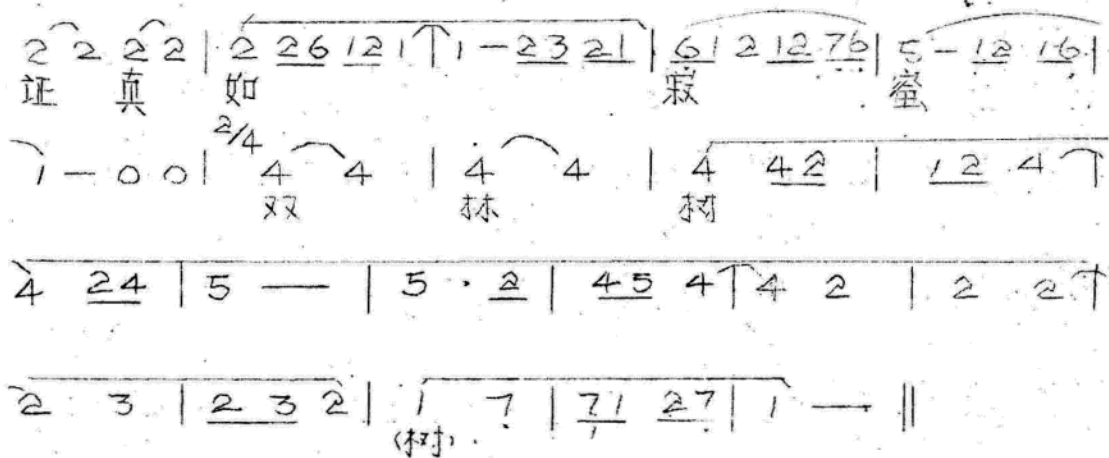 2 2 2 2 | 2 26 12 1 | 1 - 23 21 | 61 2 12 76 | 5 - 12 16 |
证 真 如 寂 蜜
1 - 0 0 | 2/4 4 4 | 4 4 | 4 42 | 12 4 |
双 林 树
4 24 | 5 — | 5 · 2 | 45 4 | 4 2 | 2 2 |
2 3 | 2 3 2 | 1 7 | 71 27 | 1 — ‖
(树)